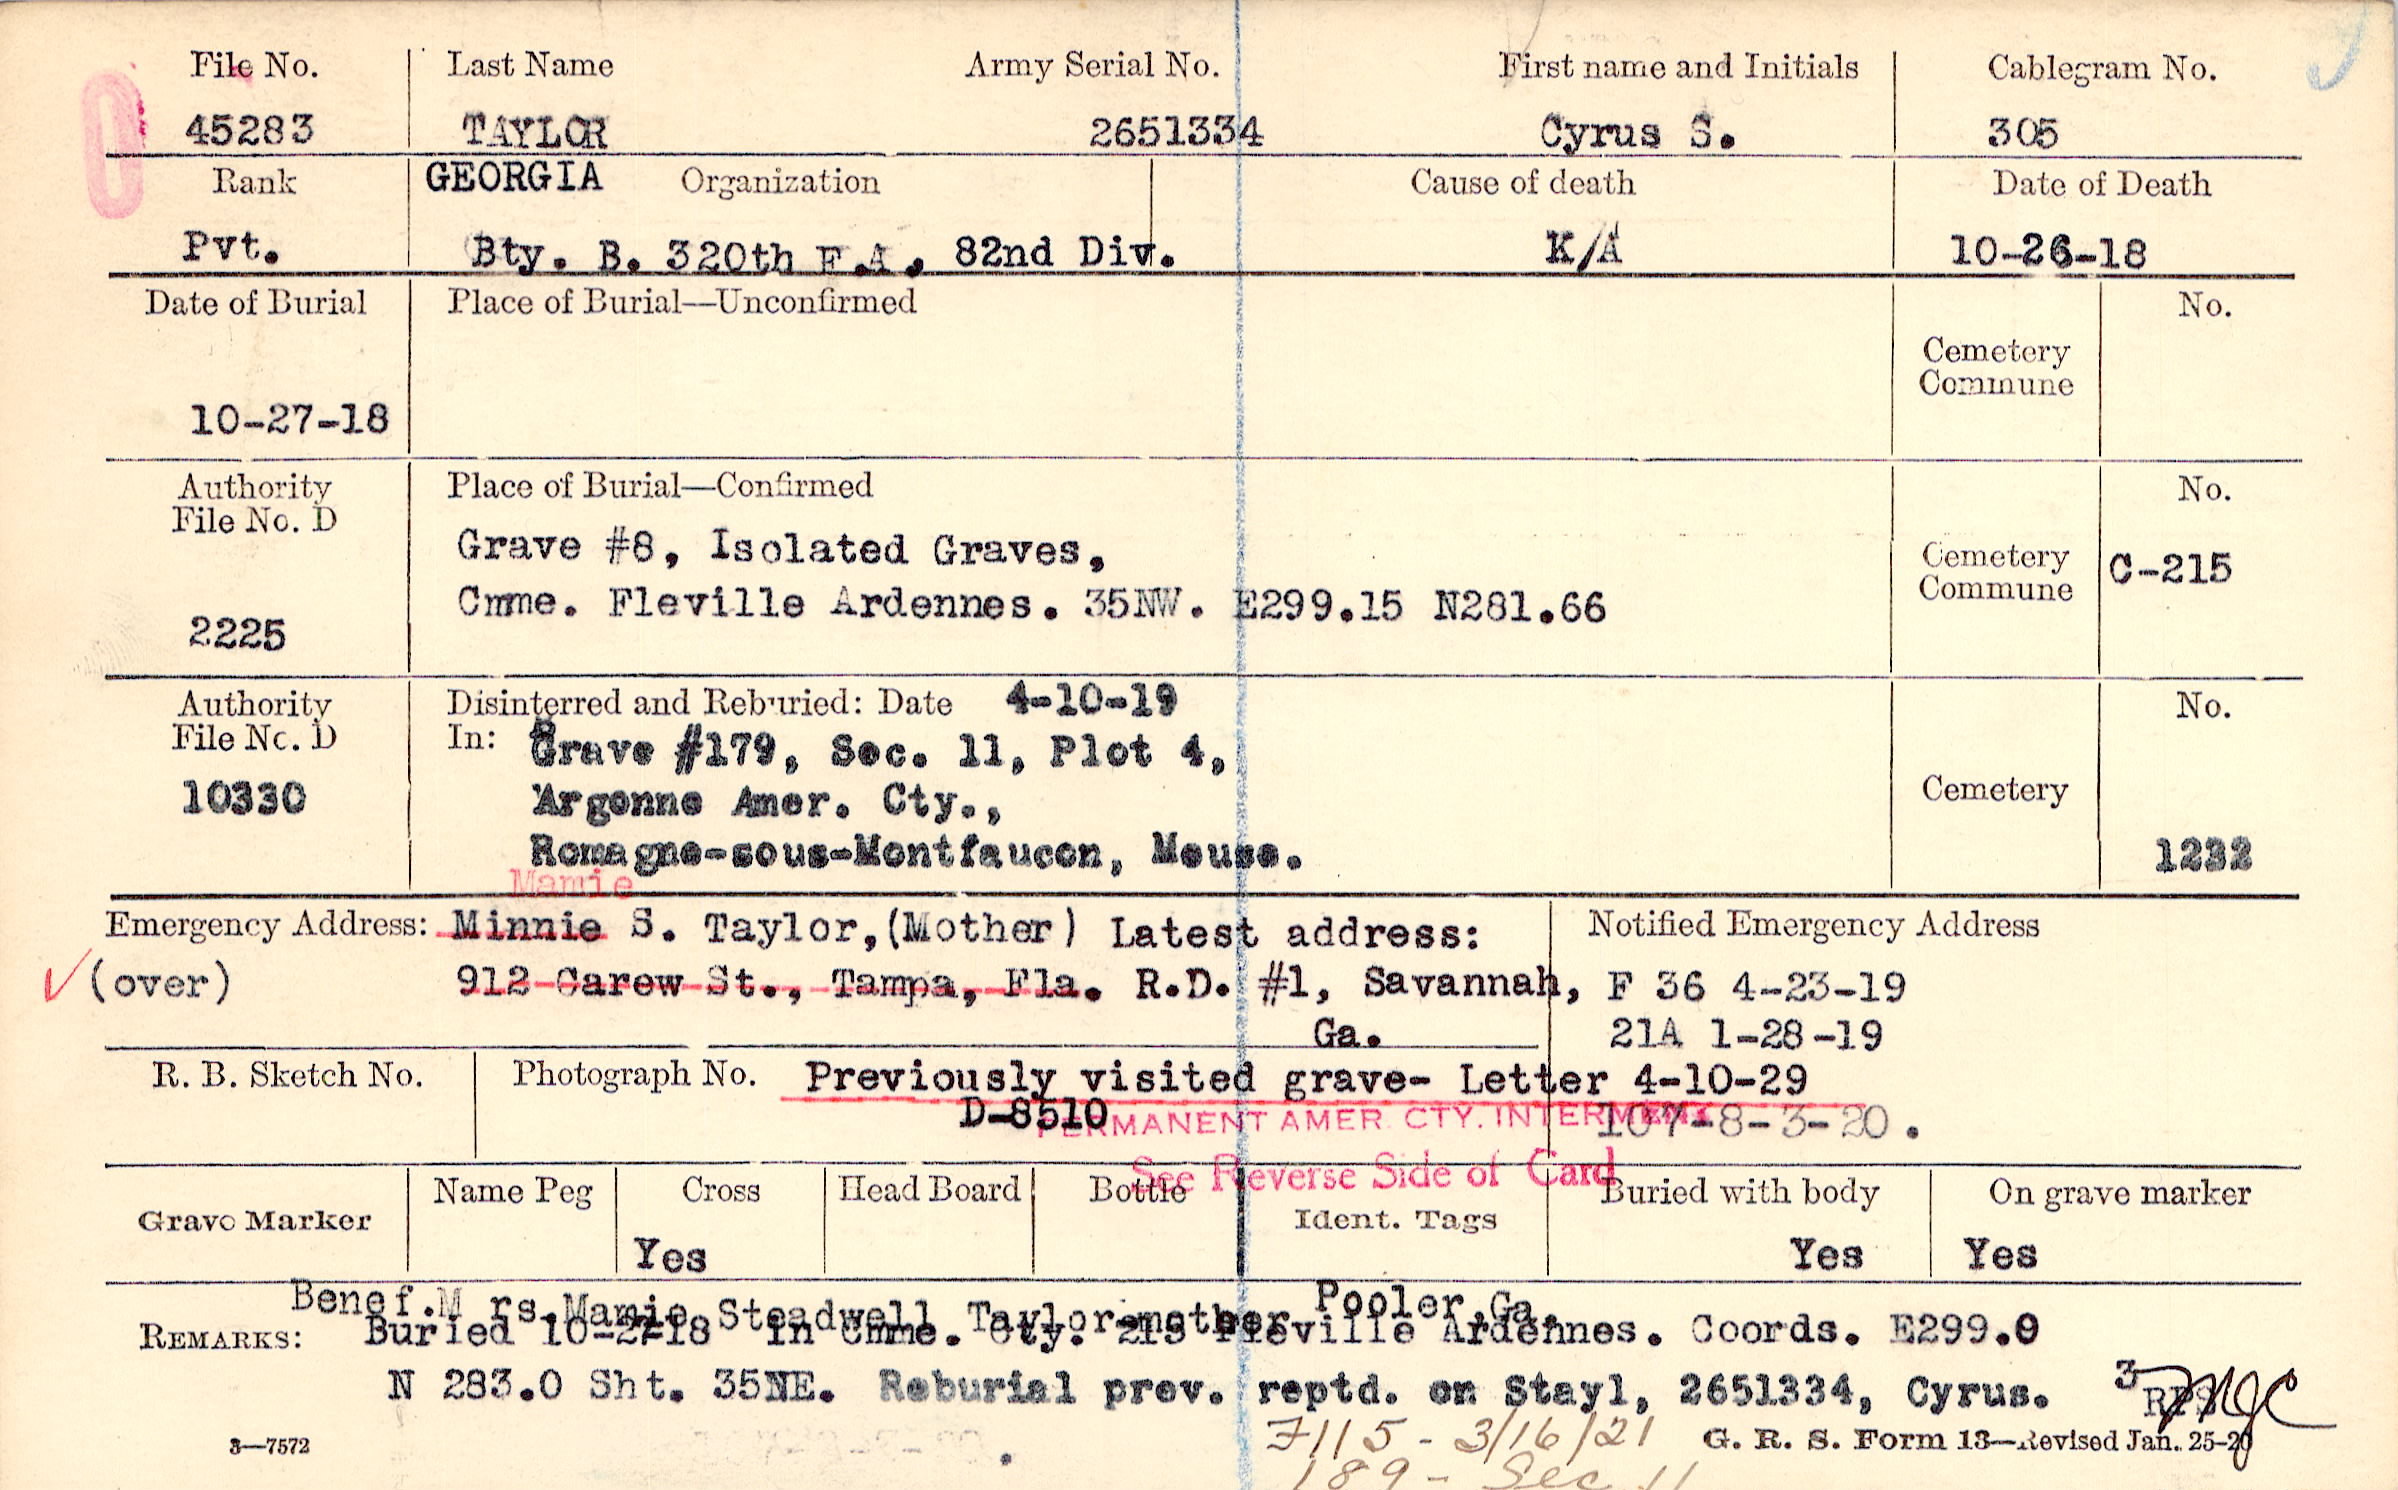 File No. Last Name Army Serial No. First name and Initials Cablegram No.
45283 TAYLOR 2651334 Cyrus S. 305
Rank GEORGIA Organization Cause of death Date of Death
Pvt. Bty. B. 320th F.A., 82nd Div. K/A 10-26-18
Date of Burial Place of Burial—Unconfirmed No.
Cemetery
Commune
10-27-18
Authority Place of Burial—Confirmed No.
File No. D
Grave #8, Isolated Graves,
Cemetery C-215
Commune
Cmme. Fleville Ardennes. 35NW. E299.15 N281.66
2225
Authority Disinterred and Reburied: Date 4-10-19 No.
File No. D In: Grave #179, Sec. 11, Plot 4,
10330 Argonne Amer. Cty., Cemetery
Romagne-sous-Montfaucon, Meuse. 1232
Mamie
Emergency Address: Minnie S. Taylor,(Mother) Latest address: Notified Emergency Address
(over) 912 Carew St., Tampa, Fla. R.D. #1, Savannah, F 36 4-23-19
Ga. 21A 1-28-19
R. B. Sketch No. Photograph No. Previously visited grave- Letter 4-10-29
D-8510 PERMANENT AMER. CTY. INTERMENT 107-8-3-20.
See Reverse Side of Card
Name Peg Cross Head Board Bottle Buried with body On grave marker
Grave Marker Ident. Tags
Yes Yes Yes
Benef.Mrs.Mamie Steadwell Taylor-mother Pooler,Ga.
REMARKS: Buried 10-27-18 in Cmme. Cty. 215 Fleville Ardennes. Coords. E299.0
N 283.0 Sht. 35NE. Reburial prev. reptd. on Stayl, 2651334, Cyrus. 3 RPS
F115 - 3/16/21
3—7572 G. R. S. Form 13—Revised Jan. 25-20
189 - Sec 11